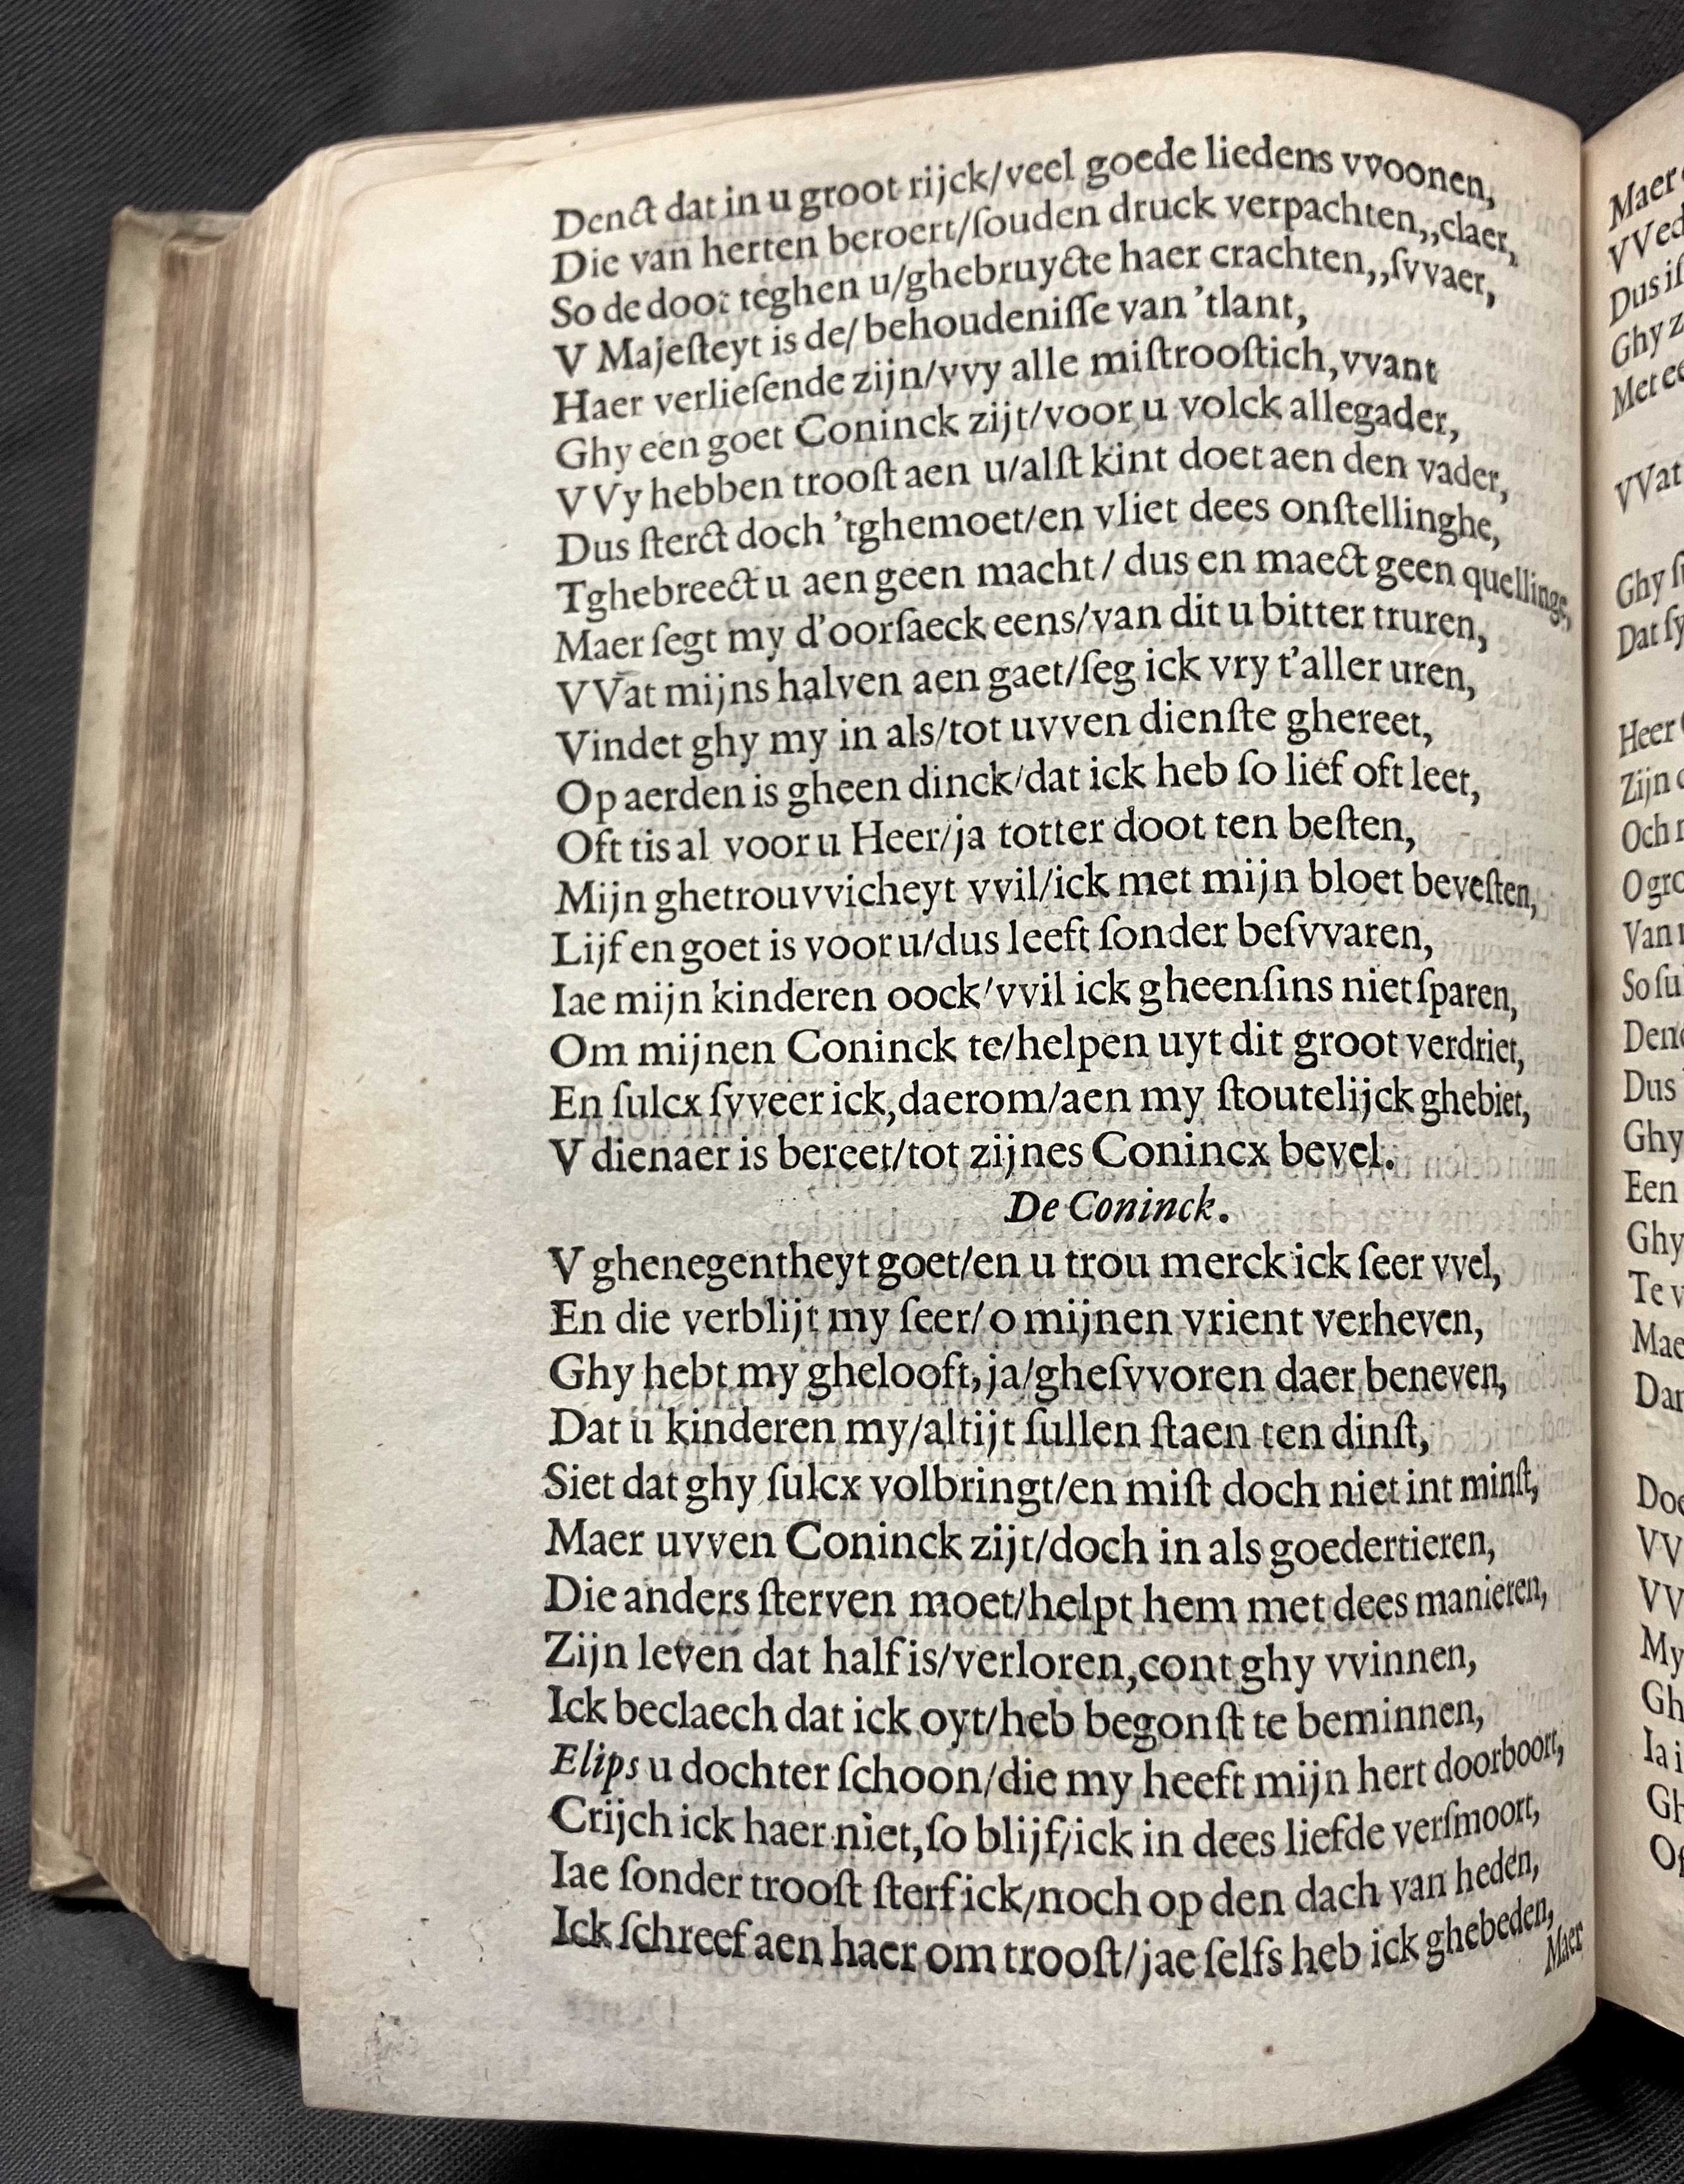 Denct dat in u groot rijck/veel goede liedens vvoonen,
Die van herten beroert/ſouden druck verpachten,,claer,
So de doot teghen u/ghebruyckte haer crachten,,ſvvaer,
V Majeſteyt is de/behoudeniſſe van 'tlant,
Haer verlieſende zijn/vvy alle miſtrooſtich,vvant
Ghy een goet Coninck zijt/voor u volck allegader,
VVy hebben trooſt aen u/alſt kint doet aen den vader,
Dus ſterct doch 'tghemoet/en vliet dees onſtellinghe,
Tghebreect u aen geen macht/ dus en maect geen quellinge,
Maer ſegt my d'oorſaeck eens/van dit u bitter truren,
VVat mijns halven aen gaet/ſeg ick vry t'aller uren,
Vindet ghy my in als/tot uvven dienſte ghereet,
Op aerden is gheen dinck/dat ick heb ſo lief oft leet,
Oft tis al voor u Heer/ja totter doot ten beſten,
Mijn ghetrouvvicheyt vvil/ick met mijn bloet beveſten,
Lijf en goet is voor u/dus leeft ſonder beſvvaren,
Iae mijn kinderen oock/vvil ick gheenſins niet ſparen,
Om mijnen Coninck te/helpen uyt dit groot verdriet,
En ſulcx ſvveer ick,daerom/aen my ſtoutelijck ghebiet,
V dienaer is bereet/tot zijnes Conincx bevel.
De Coninck.
V ghenegentheyt goet/en u trou merck ick ſeer vvel,
En die verblijt my ſeer/o mijnen vrient verheven,
Ghy hebt my ghelooft,ja/gheſvvoren daer beneven,
Dat u kinderen my/altijt ſullen ſtaen ten dinſt,
Siet dat ghy ſulcx volbringt/en miſt doch niet int minſt,
Maer uvven Coninck zijt/doch in als goedertieren,
Die anders ſterven moet/helpt hem met dees manieren,
Zijn leven dat half is/verloren,cont ghy vvinnen,
Ick beclaech dat ick oyt/heb begonſt te beminnen,
Elips u dochter ſchoon/die my heeft mijn hert doorboort,
Crijch ick haer niet,ſo blijf/ick in dees liefde verſmoort,
Iae ſonder trooſt ſterf ick/noch op den dach van heden,
Ick ſchreef aen haer om trooſt/jae ſelfs heb ick ghebeden,
Maer
Maer
VVed
Dus
Ghy
Met
VVat
Ghy
Dat
Heer
Zijn
Och
O
Van
So
Dus
Ghy
Een
Ghy
Te
VV
VV
My
Ia